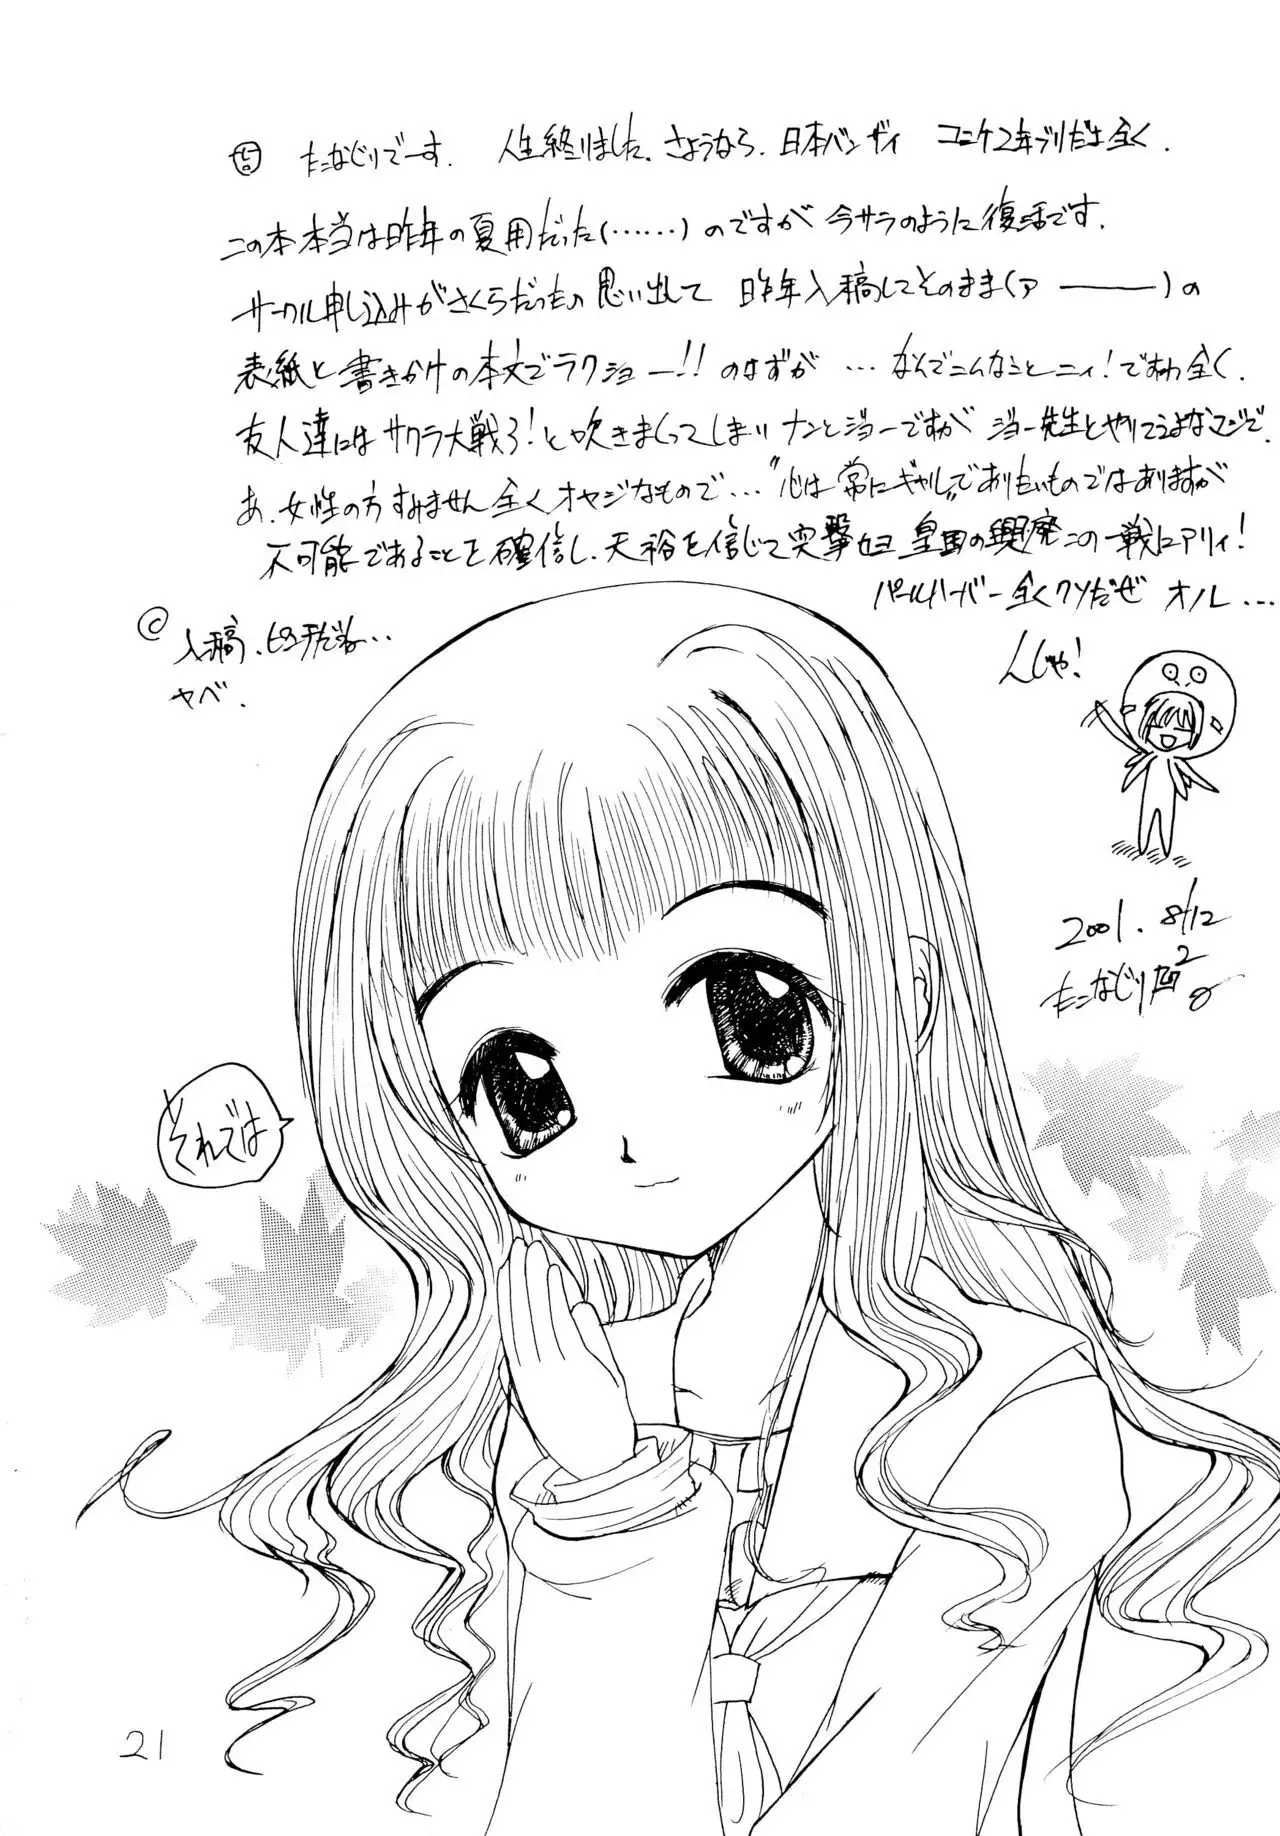 たこなじりでーす. 人生終りました. さようなら. 日本バンザイ コミケ2年ブリだよ全く.
この本本当は昨年の夏用だった(……)のですが 今サラのように復活です.
サークル申し込みがさくらだったの思い出して 昨年入稿してそのまま(ア ———)の
表紙と書きかけの本文でラクショー!! のはずが …なんでこんなことニィ!ですわ全く.
友人達にはサクラ大戦3!と吹きまくってしまい ナンとジョーですが ジョー先生と
あ.女性の方すみません全くオヤジなもので…"心は常にギャル"でありたいものではありますが
不可能であることを確信し.天裕を信じて突撃セヨ 皇国の興廃この一戦にアリィ!
パールハーバー全くクソだぜ オル…
んじゃ!
© 入稿.ピンチだね…
ヤベ.
2001. 8/12
たこなじり
それでは
21